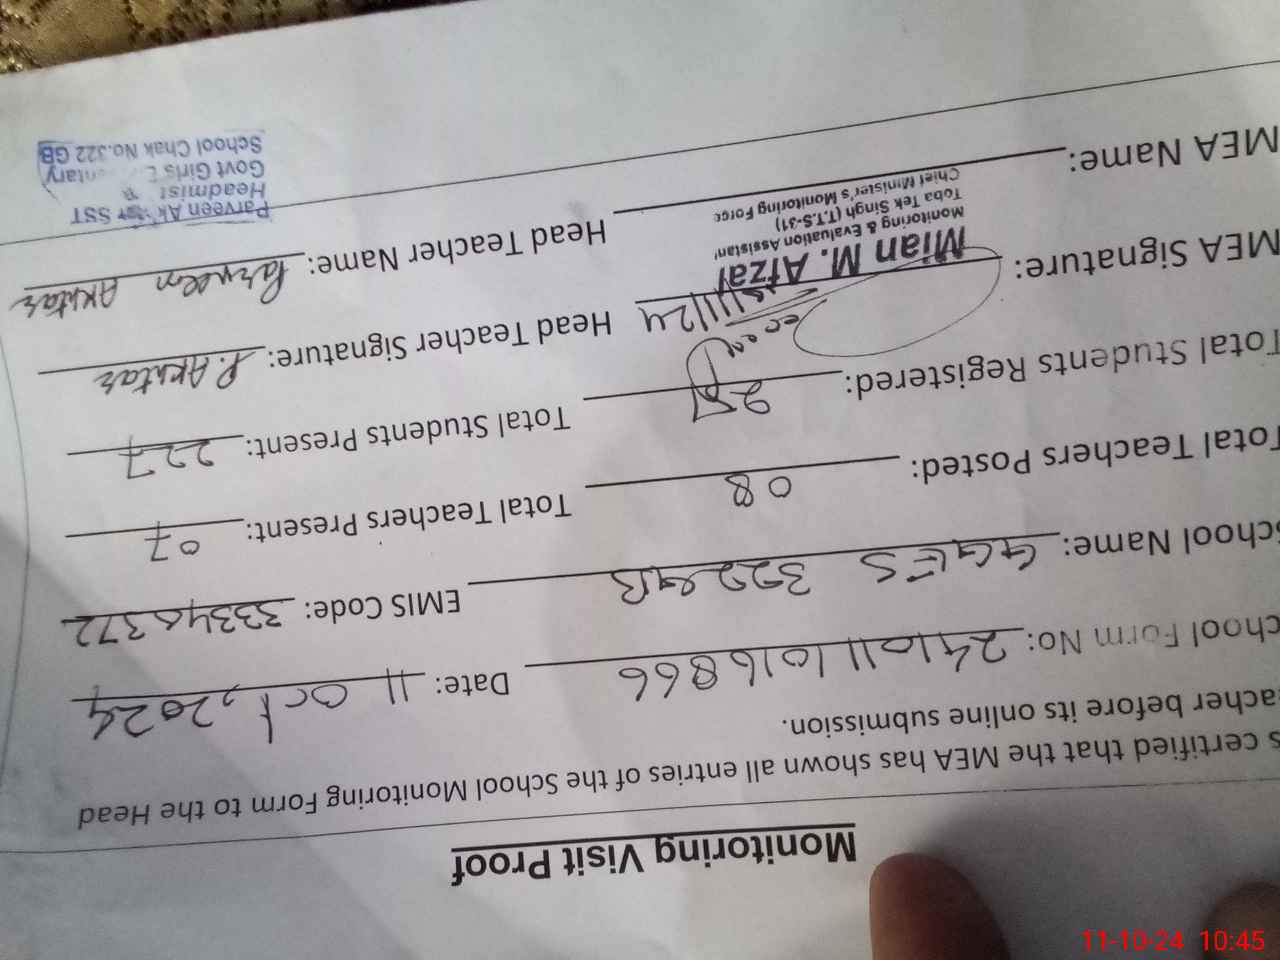 Monitoring Visit Proof
s certified that the MEA has shown all entries of the School Monitoring Form to the Head
acher before its online submission.
chool Form No: 241011 1016866 Date: 11 Oct, 2024
chool Name: GGES 322 GB EMIS Code: 33340372
Total Teachers Posted: 08 Total Teachers Present: 07
Total Students Registered: Total Students Present: 227
MEA Signature: Head Teacher Signature: P. Akhtar
11/24
MEA Name: Mian M. Afzal Head Teacher Name: Parveen Akhtar
Monitoring & Evaluation Assistant
Toba Tek Singh (T.T.S-31)
Chief Minister's Monitoring Force
Parveen Akhtar SST
Headmist
Govt Girls E entary
School Chak No.322 GB
11-10-24 10:45